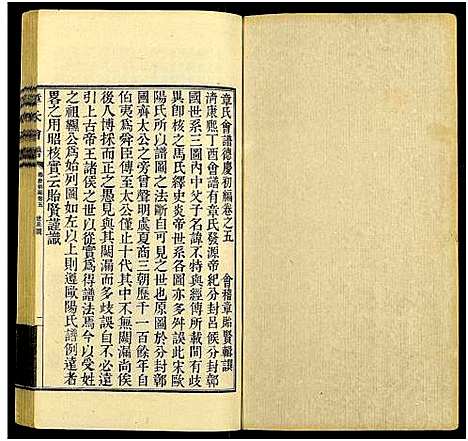 章氏會譜德慶初編卷之五 會稽章貽賢輯譔
清康熙丁酉會譜有章氏發源帝紀分封呂侯分封鄣
國世系三圖內中父子名諱不特與經傳所載間有歧
異即核之馬氏繹史炎帝世系各圖亦多舛誤此宋歐
陽氏所以譜圖之法斷自可見之世也原圖於分封鄣
國齊太公之旁曾聲明虞夏商三朝歷千一百餘年自
伯夷為舜臣傳至太公僅止十代其中不無闕漏尚俟
後人博採而正之愚見與其闕漏而多歧誤自不必遠
引上古帝王諸侯之世以從實為得譜法焉今以受姓
之祖韅公為始列圖如左以上則遵歐陽氏譜例遠者
畧之用昭核實云貽賢謹識
章氏會譜
德慶初編卷五
世系圖
一